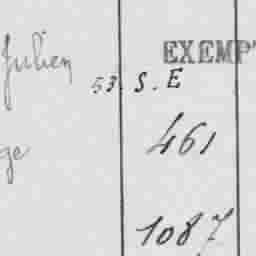 Julien EXEMPT
53 S.E
461
ge
1087